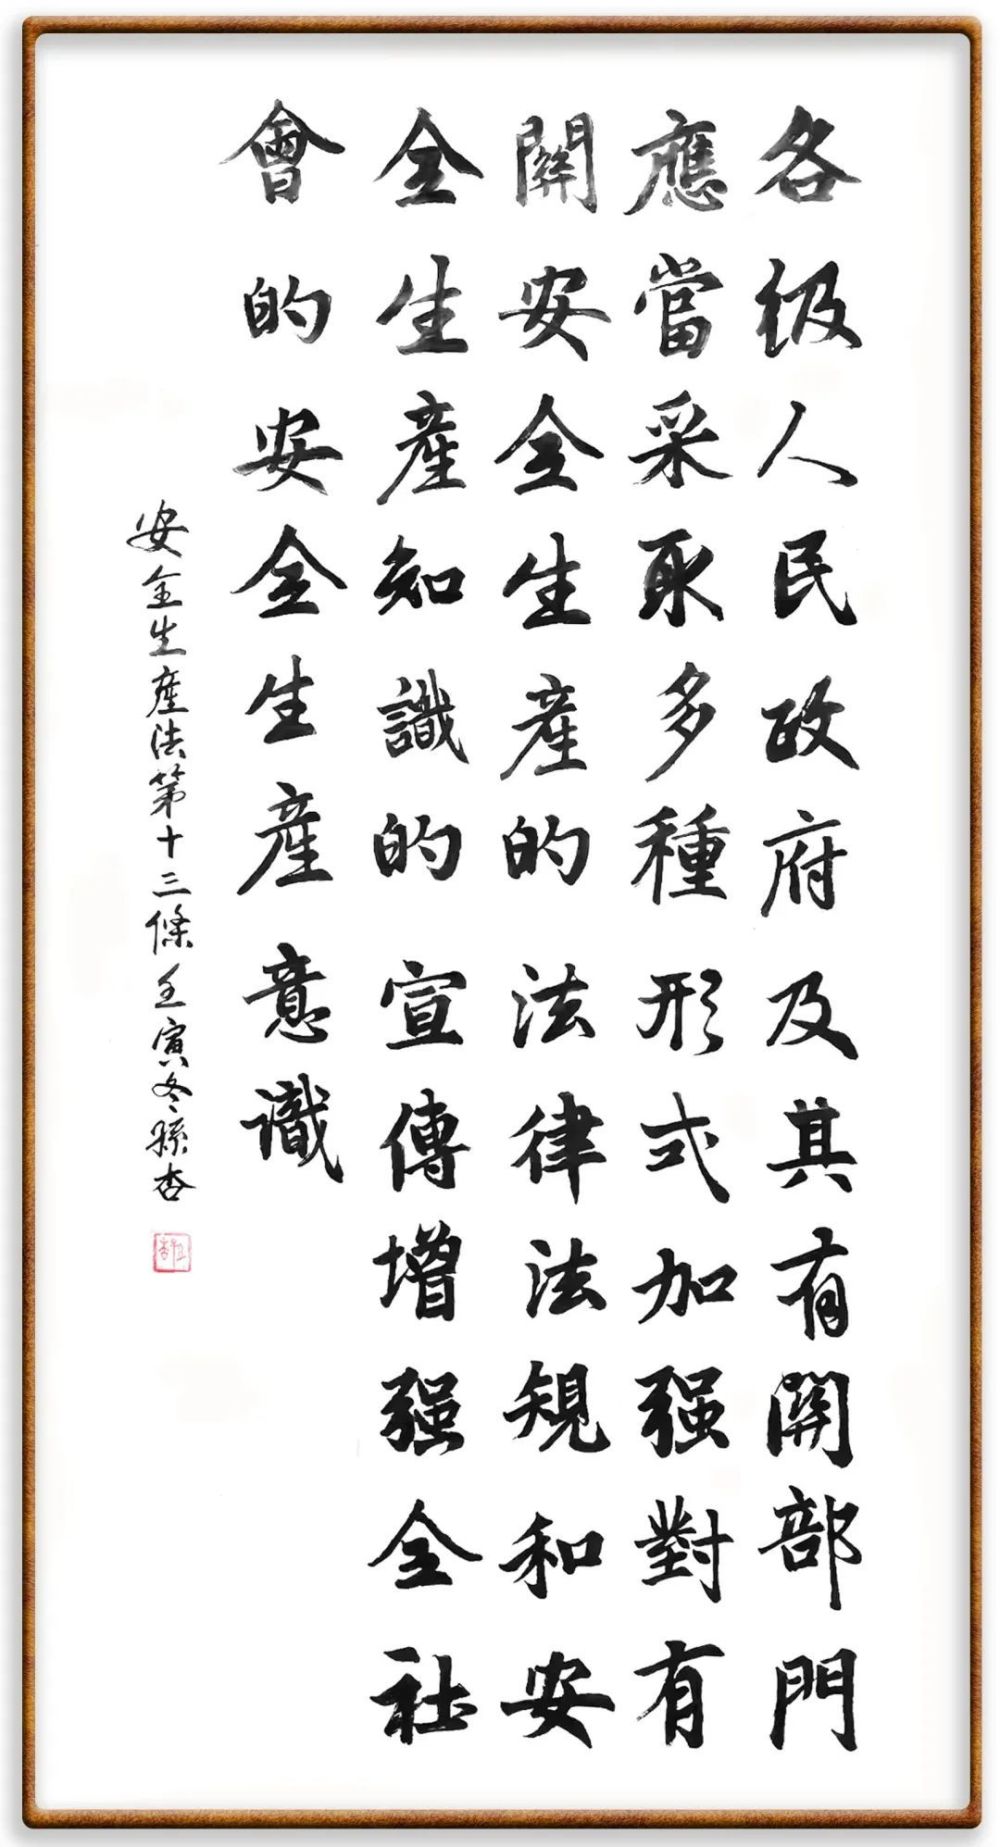 各级人民政府及其有關部門
應當采取多種形式加强對有
關安全生產的法律法規和安
全生產知識的宣傳增强全社
會的安全生產意識
安全生產法第十三條壬寅冬孫杏